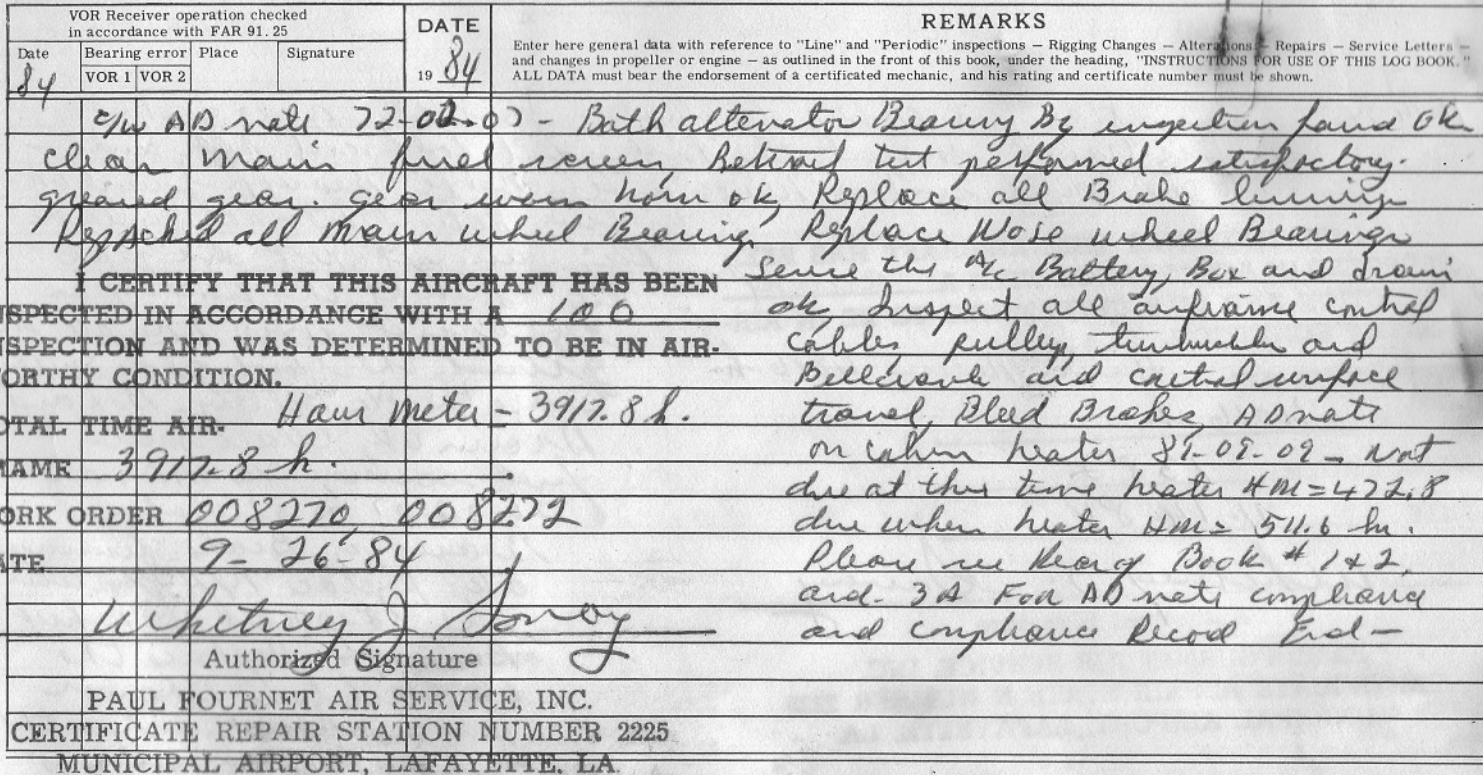 VOR Receiver operation checked
in accordance with FAR 91.25
Date Bearing error Place Signature
VOR 1 VOR 2
84
DATE
19 84
REMARKS
Enter here general data with reference to "Line" and "Periodic" inspections — Rigging Changes — Alterations — Repairs — Service Letters —
and changes in propeller or engine — as outlined in the front of this book, under the heading, "INSTRUCTIONS FOR USE OF THIS LOG BOOK."
ALL DATA must bear the endorsement of a certificated mechanic, and his rating and certificate number must be shown.
c/w AD note - Both alternator Bearing By found ok
clean main fuel screen, Retract test performed satisfactory.
gear. gear horn ok, Replace all Brake lining
Repacked all main wheel Bearing, Replace Nose wheel Bearings
I CERTIFY THAT THIS AIRCRAFT HAS BEEN
SPECTED IN ACCORDANCE WITH A 100
SPECTION AND WAS DETERMINED TO BE IN AIR-
ORTHY CONDITION.
OTAL TIME AIR- Hour meter - 3917.8 h.
RAME 3917.8 h.
ORK ORDER 008270, 008272
ATE 9-26-84
Whetney J
Authorized Signature
PAUL FOURNET AIR SERVICE, INC.
CERTIFICATE REPAIR STATION NUMBER 2225
MUNICIPAL AIRPORT, LAFAYETTE, LA.
the A/c Battery, Box and drain
ok, Inspect all airframe control
cables, pulley, and
and control surface
travel, Bleed Brakes, AD note
on heater - not
due at this time heater HM = 472.8
due when heater HM = 511.6 hr.
Please see Book # 1 & 2,
and - 3A For AD note compliance
and compliance Record End -